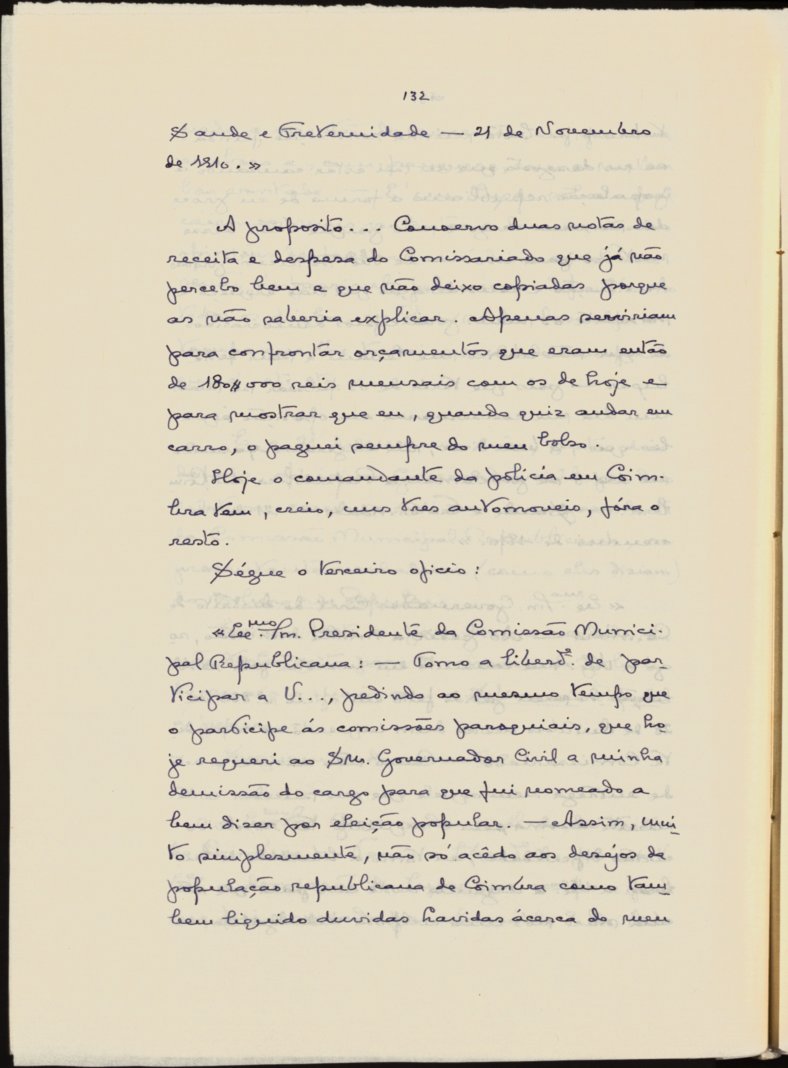 132
Saude e Fraternidade — 21 de Novembro
de 1910. »
A proposito... Conservo duas notas de
receita e despesa do Comissariado que já não
percebo bem e que não deixo copiadas porque
as não saberia explicar. Apenas serviriam
para confrontar orçamentos que eram então
de 180$000 reis mensais com os de hoje e
para mostrar que eu, quando quiz andar em
carro, o paguei sempre do meu bolso.
Hoje o comandante da policia em Coim-
bra tem, creio, uns tres automoveis, fóra o
resto.
Ségue o terceiro oficio:
«Exc.mo Sm. Presidente da Comissão Munici-
pal Republicana: — Tomo a liberd.e de par-
ticipar a V..., pedindo ao mesmo tempo que
o participe ás comissões paroquiais, que ho-
je requeri ao Snr. Governador Civil a minha
demissão do cargo para que fui nomeado a
bem diser por eleição popular. — Assim, mui-
to simplesmente, não só acêdo aos deséjos da
população republicana de Coimbra como tam-
bem liquido duvidas havidas ácerca do meu